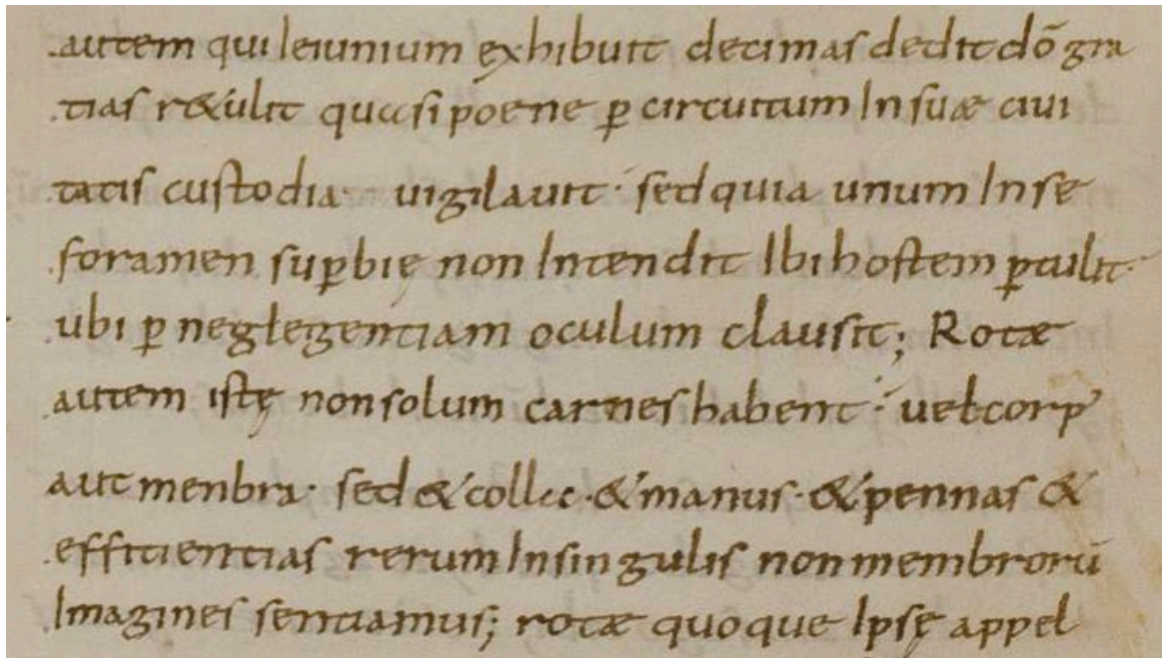 autem qui ieiunium exhibuit decimas dedit dō gra
tias r&ulit quasi poene p̲ circuitum In suæ ciui
tatis custodia · uigilauit · sed quia unum In se
foramen sup̲bię non Intendit Ibi hostem p̲tulit ·
ubi p̲ neglegentiam oculum clausit; Rotæ
autem istę non solum carnes habent · uel corp’
aut menbra · sed & colla · & manus · & pennas &
efficientias rerum In singulis non membrorū
Imagines sentiamus; rotæ quoque Ipsę appel